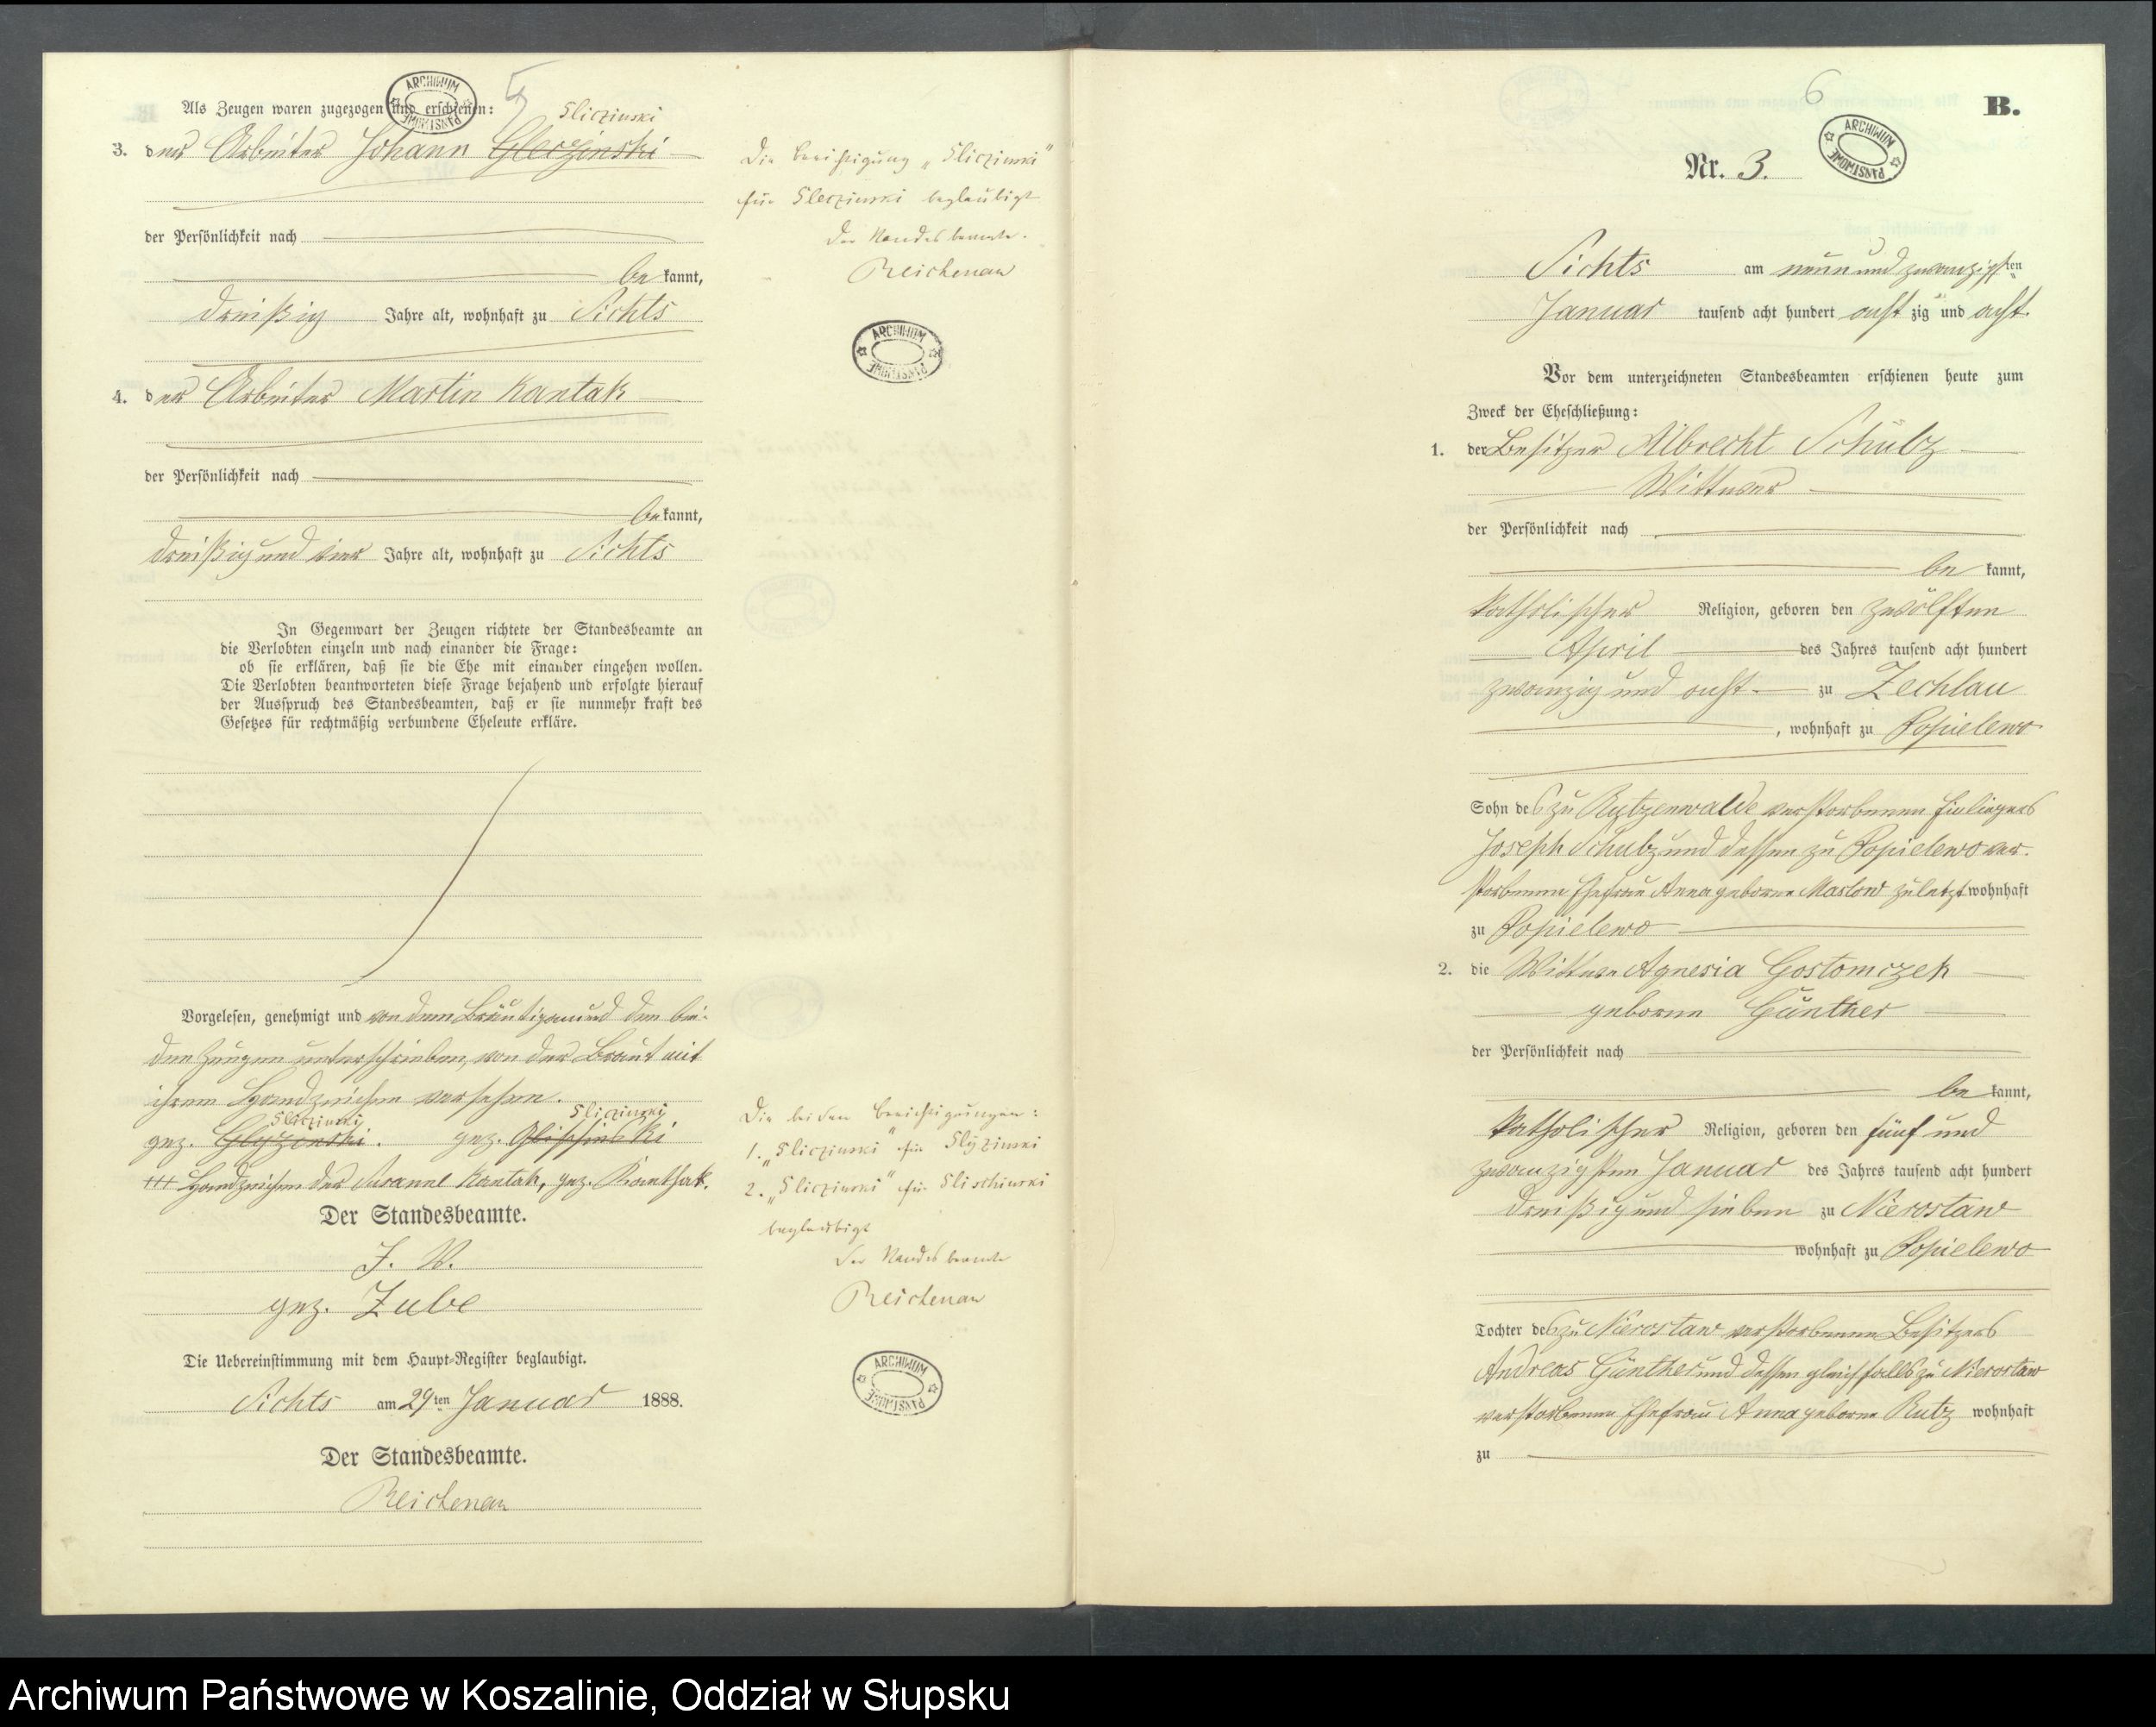 Als Zeugen waren zugezogen und erschienen:
5
Sliczinski
3. der Arbeiter Johann Gleczinski
der Persönlichkeit nach
be kannt,
dreißig Jahre alt, wohnhaft zu Sichts
4. der Arbeiter Martin Kantak
der Persönlichkeit nach
be kannt,
dreißig und vier Jahre alt, wohnhaft zu Sichts
In Gegenwart der Zeugen richtete der Standesbeamte an
die Verlobten einzeln und nach einander die Frage:
ob sie erklären, daß sie die Ehe mit einander eingehen wollen.
Die Verlobten beantworteten diese Frage bejahend und erfolgte hierauf
der Ausspruch des Standesbeamten, daß er sie nunmehr kraft des
Gesetzes für rechtmäßig verbundene Eheleute erkläre.
Vorgelesen, genehmigt und von dem Bräutigam und den bei-
den Zeugen unterschrieben, von der Braut mit
ihrem Handzeichen versehen.
Sliczinski Sliczinski
gez. gez.
+++ Handzeichen der Susanne Kantak, gez. Kanthak.
Der Standesbeamte.
J. V.
gez. Zube
Die Uebereinstimmung mit dem Haupt-Register beglaubigt.
Sichts am 29ten Januar 1888.
Der Standesbeamte.
Reichenau
Die Berichtigung „Sliczinski"
für Sleczinski beglaubigt
Der Standesbeamte.
Reichenau
Die beiden Berichtigungen:
1. „Sliczinski" für Slyzinski
2. „Sliczinski" für Slischinski
beglaubigt
Der Standesbeamte
Reichenau
ARCHIWUM PAŃSTWOWE
6
B.
Nr. 3.
Sichts am neun und zwanzigsten
Januar tausend acht hundert acht zig und acht.
Vor dem unterzeichneten Standesbeamten erschienen heute zum
Zweck der Eheschließung:
1. der Besitzer Albrecht Schulz
Wittwer
der Persönlichkeit nach
be kannt,
katholischer Religion, geboren den zwölften
April des Jahres tausend acht hundert
zwanzig und acht zu Zechlau
, wohnhaft zu Popielewo
Sohn des zu Rutzenwalde verstorbenen Einliegers
Joseph Schulz und dessen zu Popielewo ver-
storbenen Ehefrau Anna geborene Maslow zuletzt wohnhaft
zu Popielewo
2. die Wittwe Agnesia Gostomczek
geborene Günther
der Persönlichkeit nach
be kannt,
katholischer Religion, geboren den fünf und
zwanzigsten Januar des Jahres tausend acht hundert
dreißig und sieben zu Nierostaw
wohnhaft zu Popielewo
Tochter des zu Nierostaw verstorbenen Besitzers
Andreas Günther und dessen gleichfalls zu Nierostaw
verstorbenen Ehefrau Anna geborene Rutz wohnhaft
zu
Archiwum Państwowe w Koszalinie, Oddział w Słupsku